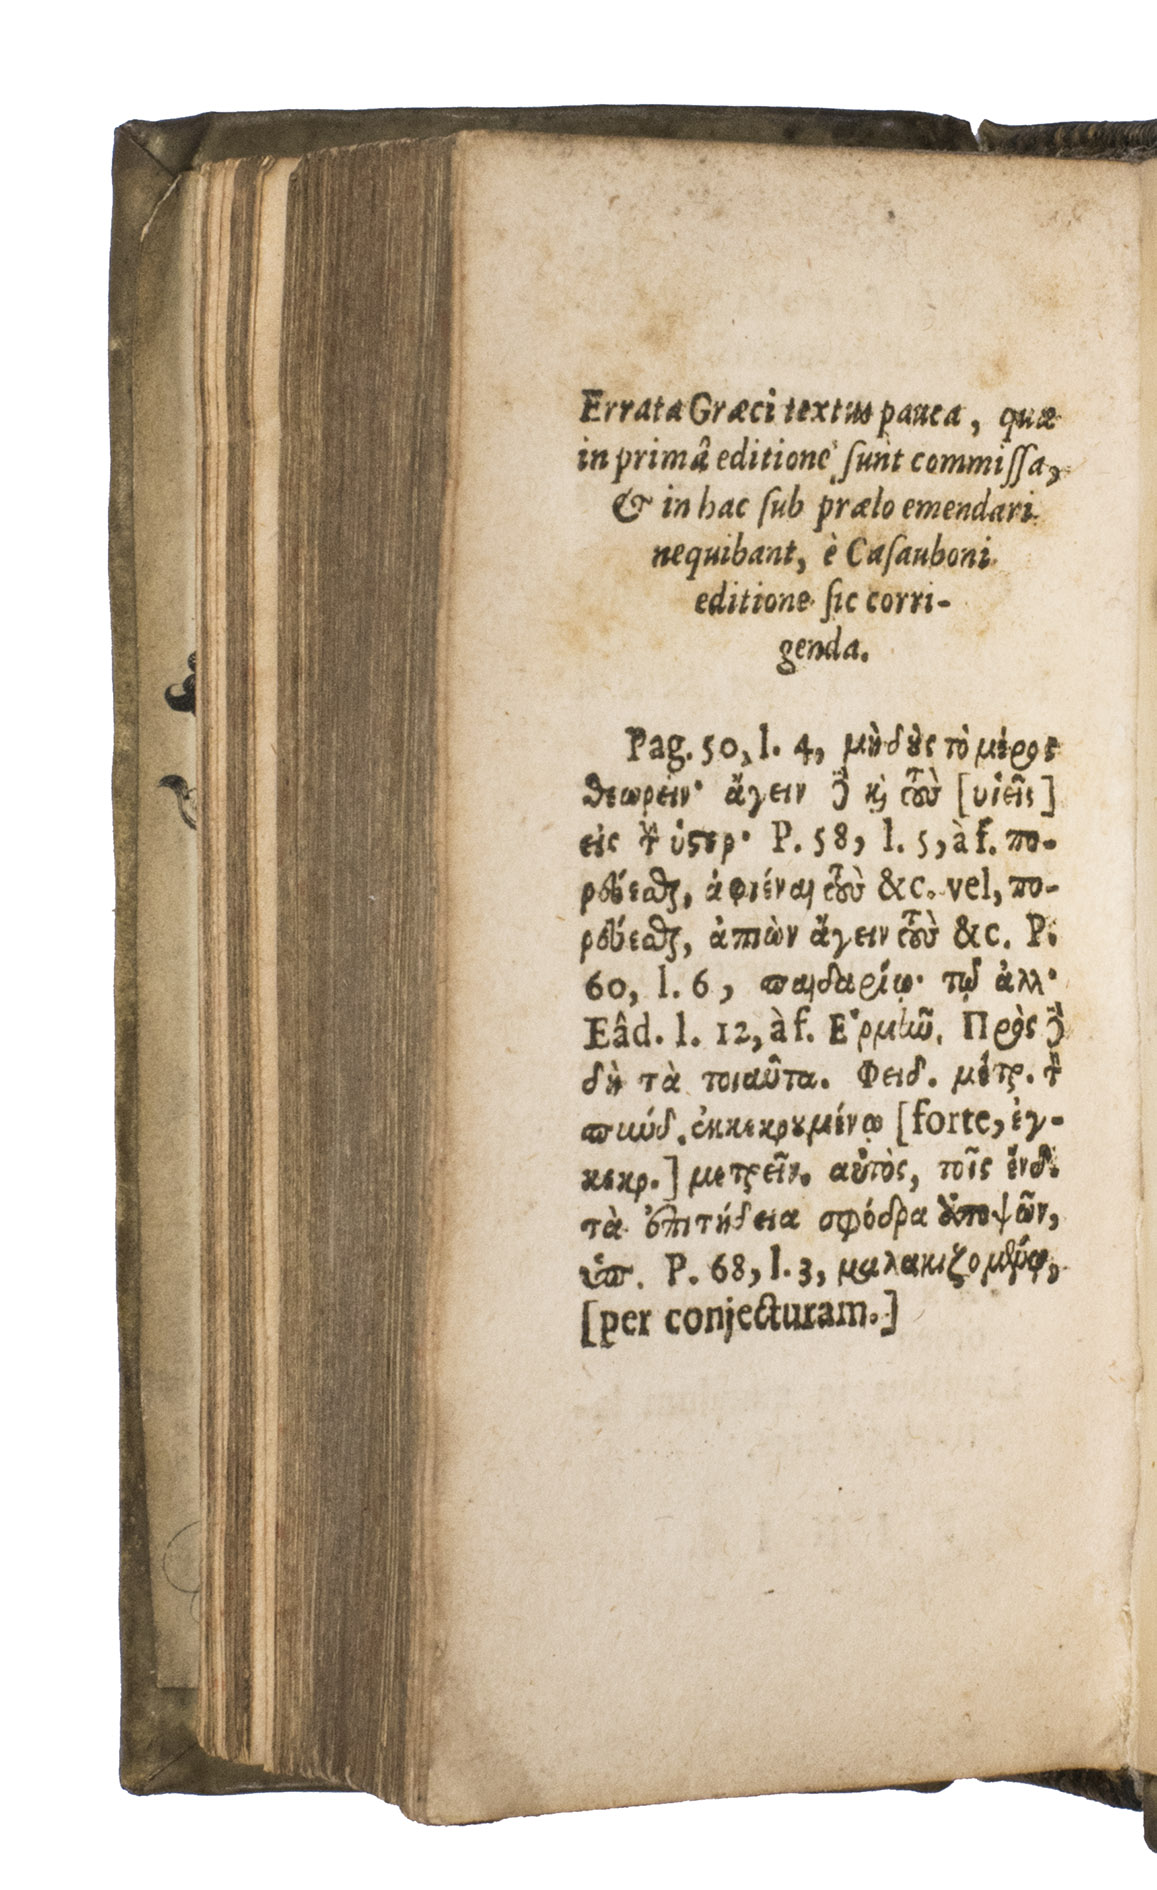 Errata Græci textus pauca, quæ
in primâ editione ſunt commiſſa,
& in hac ſub prælo emendari
nequibant, è Caſauboni
editione ſic corri-
genda.
Pag. 50, l. 4, μὴ δὲς τὸ μέρος
θεωρεῖν· ἄγειν δὲ καὶ τοὺς [υἱεῖς]
εἰς τὴν ὑστερ· P. 58, l. 5, à f. πο-
ρεύεσθαι, ἀφιέναι τοὺς &c. vel, πο-
ρεύεσθαι, ἀπιὼν ἄγειν τοὺς &c. P.
60, l. 6, παιδαρίῳ· τῷ ἀλλ·
Eâd. l. 12, à f. Ἑρμοῦ. Πρὸς δὲ
δὴ τὰ τοιαῦτα. Φειδ. μέτρ. τὸν
πύνδ. ἐκκεκρουμένῳ [forte, ἐγ-
κεκρ.] μετρεῖν. αὐτὸς, τοῖς ἔνδ.
τὰ ἐπιτήδεια σφόδρα ἀποψῶν,
ὑπ. P. 68, l. 3, μαλακιζομένῳ,
[per conjecturam.]